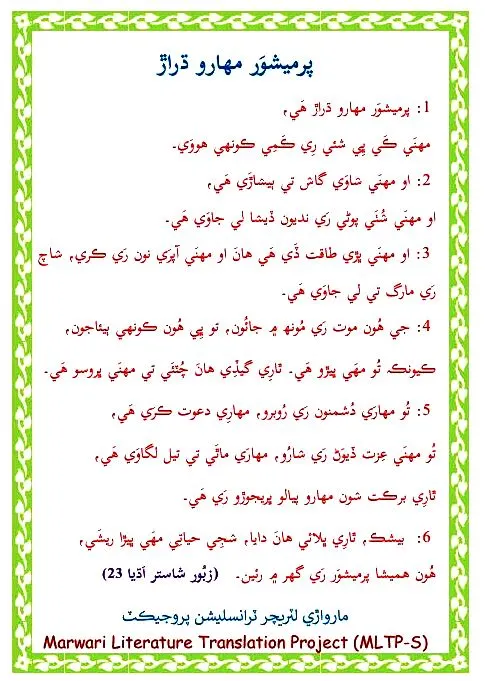 پرميشوَر مهارو ڌراڙ
1: پرميشوَر مهارو ڌراڙ هَي,
مهنَي کَي ڀِي شئي رِي ڪَمِي ڪونهي هووَي۔
2: او مهنَي شاوَي گاش تي ٻيشاڙَي هَي,
او مهنَي شُنَي پوڻي رَي نديون ڏيشا لي جاوَي هَي۔
3: او مهنَي پڙي طاقت ڏَي هَي هانَ او مهنَي آپرَي نون رَي ڪري, شاچ
رَي مارگ تي لي جاوَي هَي۔
4: جي هُون موت رَي مُونھ ۾ جائُون, تو ڀِي هُون ڪونهي ٻيئاجون,
ڪيونڪ تُو مهَي ڀيڙو هَي۔ ٿارِي گيڏِي هانَ چُٽئَي تي مهنَي ڀروسو هَي۔
5: تُو مهارَي دُشمنون رَي رُوبرو, مهارِي دعوت ڪرَي هَي,
تُو مهنَي عِزت ڏيوَڻ رَي شارُو, مهارَي ماٿَي تي تيل لگاوَي هَي,
ٿارِي برڪت شون مهارو پيالو ڀريجوڙو رَي هَي۔
6: بيشڪ, ٿارِي ڀلائي هانَ دايا, شڄِي حياتِي مهَي ڀيڙا ريشَي,
هُون هميشا پرميشوَر رَي گهر ۾ رئين۔ (زبُور شاستر آڌيا 23)
مارواڙي لٽريچر ٽرانسليشن پروجيڪٽ
Marwari Literature Translation Project (MLTP-S)